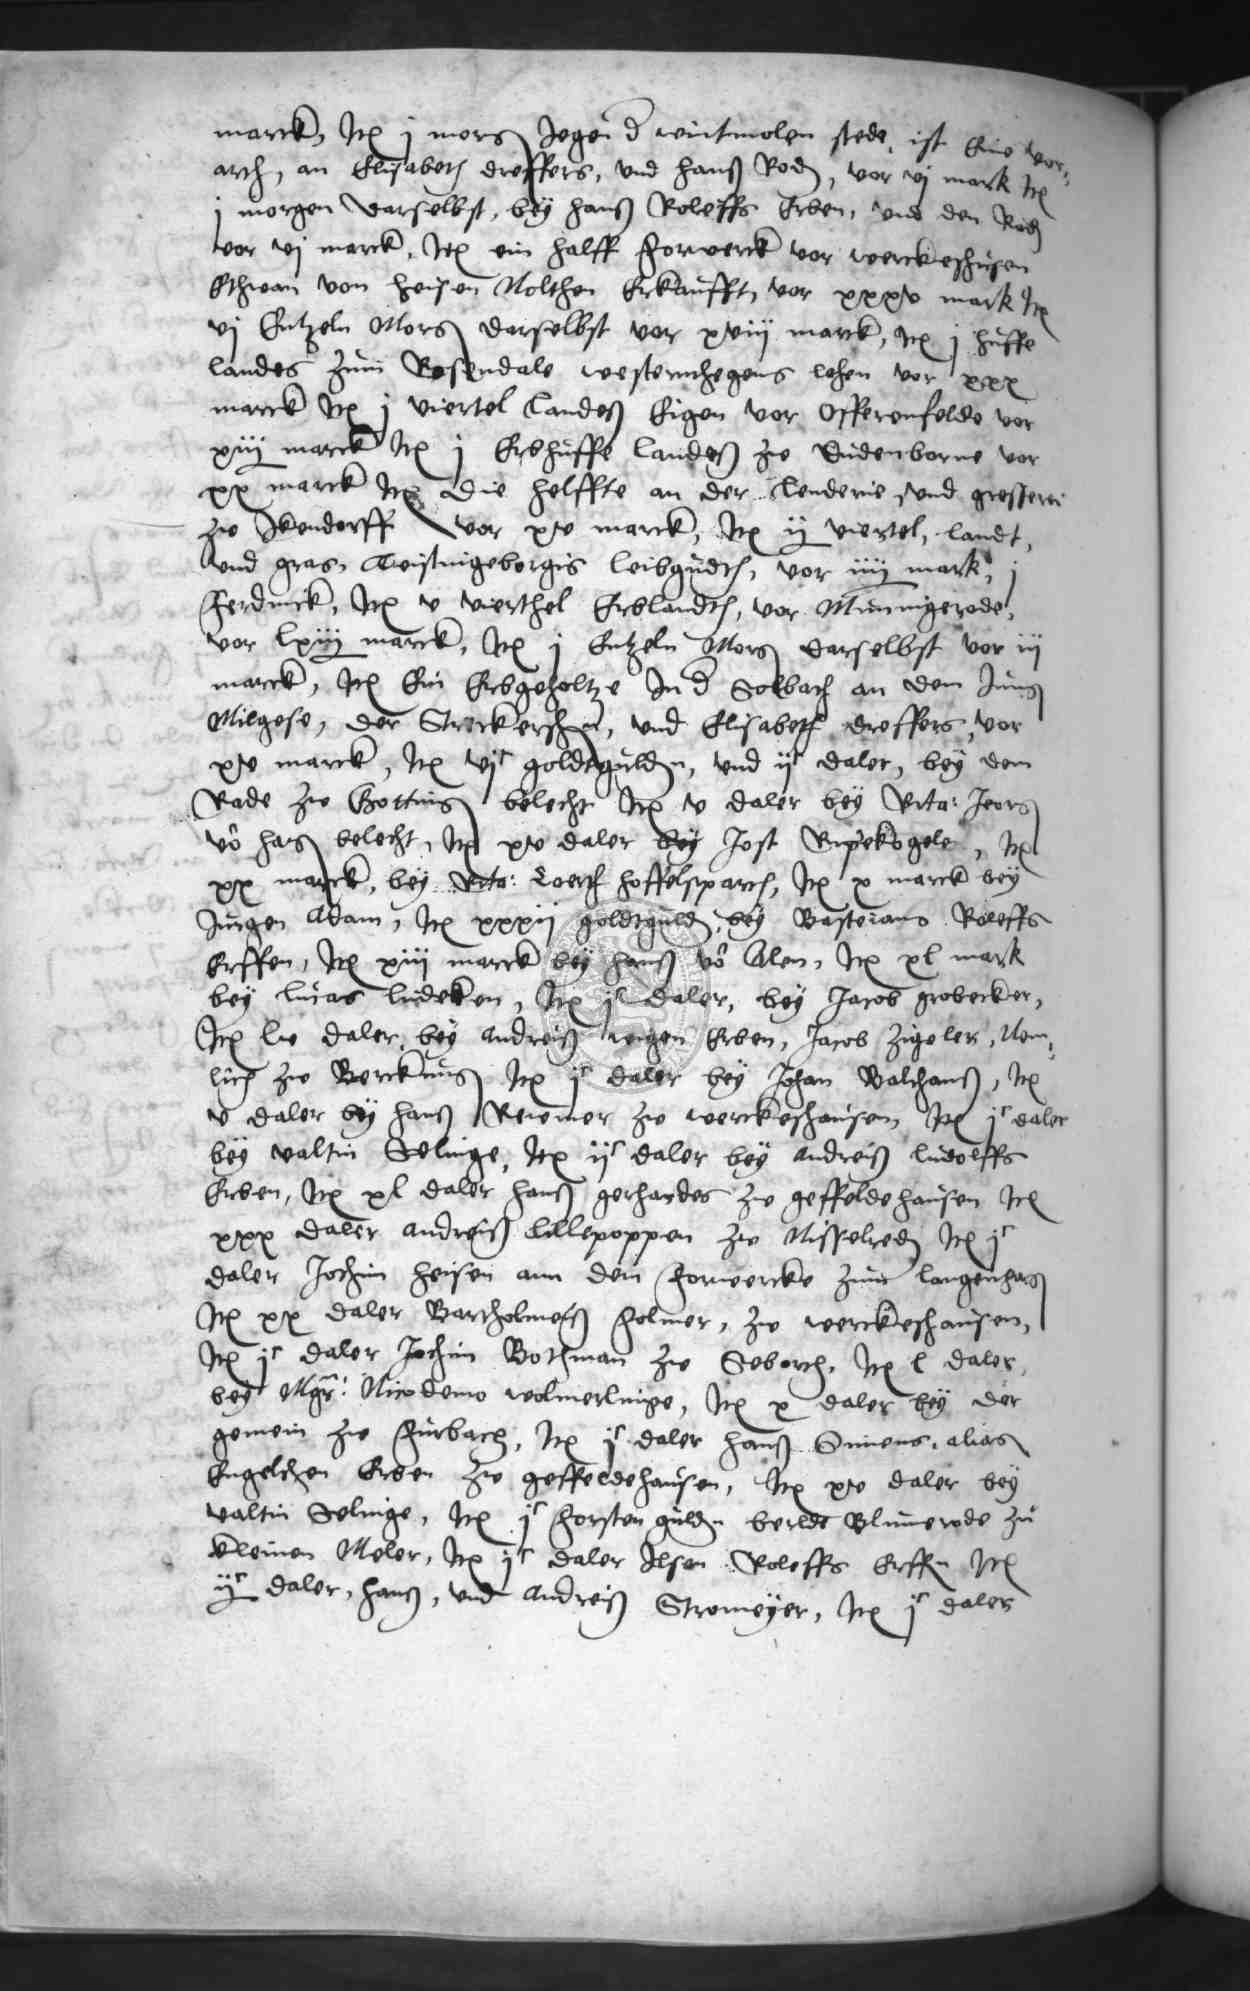 marck, Itē j morg Jegen d wintmolen stede, ist Eine vor-
arth, an Elisabeth dreffers, vnd Hans Rodn, vor vj mark Itē
j morgen darselbst, bey Hanß Roleffs Erben, vnd den Rodn
vor vj marck, Itē ein halff Forwerck vor werckeshusen
Ethwan von Heisen Nolthen Erkaufft, vor xxxv mark Itē
vj Entzeln Morg darselbst vor xviij marck, Itē j huffe
landes zum Rosendale westernhegens lehen vor xxx
marck Itē j viertel Landeß Eigen vor Offerenfelde vor
xiij marck Itē j Erbhuffe landeß zw Sudenborne vor
xx marck Itē die helffte an der Lenderie, vnd grefferei
zw Ikendorff vor xv marck, Itē ij viertel, landt,
vnd gras, Cristingeborgis leibgudth, vor iiij mark, j
Ferdinck, Itē v vierthel Erblandth, vor Minnigerode,
vor lxiij marck, Itē j Entzeln Morg darselbst vor iij
marck, Itē Ein Erbgeholtze In d Solbach an dem Jung
Milgese, der Strckerschen, vnd Elisabeth dreffers, vor
xv marck, Itē vjc goldtguldn, vnd ijc daler, bey dem
Rade zw Gotting belecht Itē v daler bey Rita: Jeorg
vō Harß belecht, Itē xv daler bey Jost Rupekogele, Itē
xx marck, bey Rita: Coerth Hoffelsparch, Itē x marck bey
Jungen Adam, Itē xxxij goldtguldn, bey Basterians Roleffs
Erffen, Itē xiij marck bey Hanß vō Alen, Itē xl mark
bey Lucas ludeken, Itē jc daler, bey Jacob grobecker,
Itē lv daler, bey Andreiß weigen Erben, Jacob Zigeler, Nem-
lich zw Berckung Itē jc daler bey Johan Walthanß, Itē
v daler bey Hanß Reiemer zw werckeshausen, Itē jc daler
bey valtin Selinge, Itē ijc daler bey Andreiß ludolffs
Erben, Itē xl daler Hanß gerhardes zw geffeldehausen Itē
xxx daler Andreiß Lillepoppen zw Nisselredn Itē jc
daler Jochim Heisen ann dem Forwercke zum langenhag
Itē xx daler Bartholmeß Folmer, zw werckeshausen,
Itē jc daler Jochim Bothman zw Seborch, Itē l daler,
bey Mgr: Nicodemo wolmerlinge, Itē x daler bey der
gemein zw Furbach, Itē jc daler Hanß Simens, alias
Engelchen Erben zw geffeldehausen, Itē xv daler bey
valtin Selinge, Itē jc Forsten guldn berldt Blumerode zu
kleinen Meler, Itē jc daler Ilsen Roleffs Erffn Itē
ijc daler, Hanß, vnd Andreiß Stromeyer, Itē jc daler